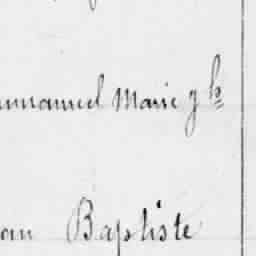 mmanuel Marie jh
an Baptiste